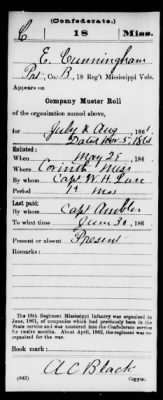 (Confederate.)
C 18 Miss.
E. Cunningham
Pvt, Co. B, 18 Reg't Mississippi Vols.
Appears on
Company Muster Roll
of the organization named above,
for July & Aug, 1861.
Dated Nov. 5, 1861
Enlisted:
When May 28, 186
Where Corinth Miss
By whom Capt. W. H. Luse
Period 12 Mos
Last paid:
By whom Capt Ambler
To what time June 30, 186
Present or absent Present
Remarks:
The 18th Regiment Mississippi Infantry was organized in
June, 1861, of companies which had previously been in the
State service and was mustered into the Confederate service
for twelve months. About April, 1862, the regiment was re-
organized for the war.
Book mark:
A C Black
(642) Copyist.